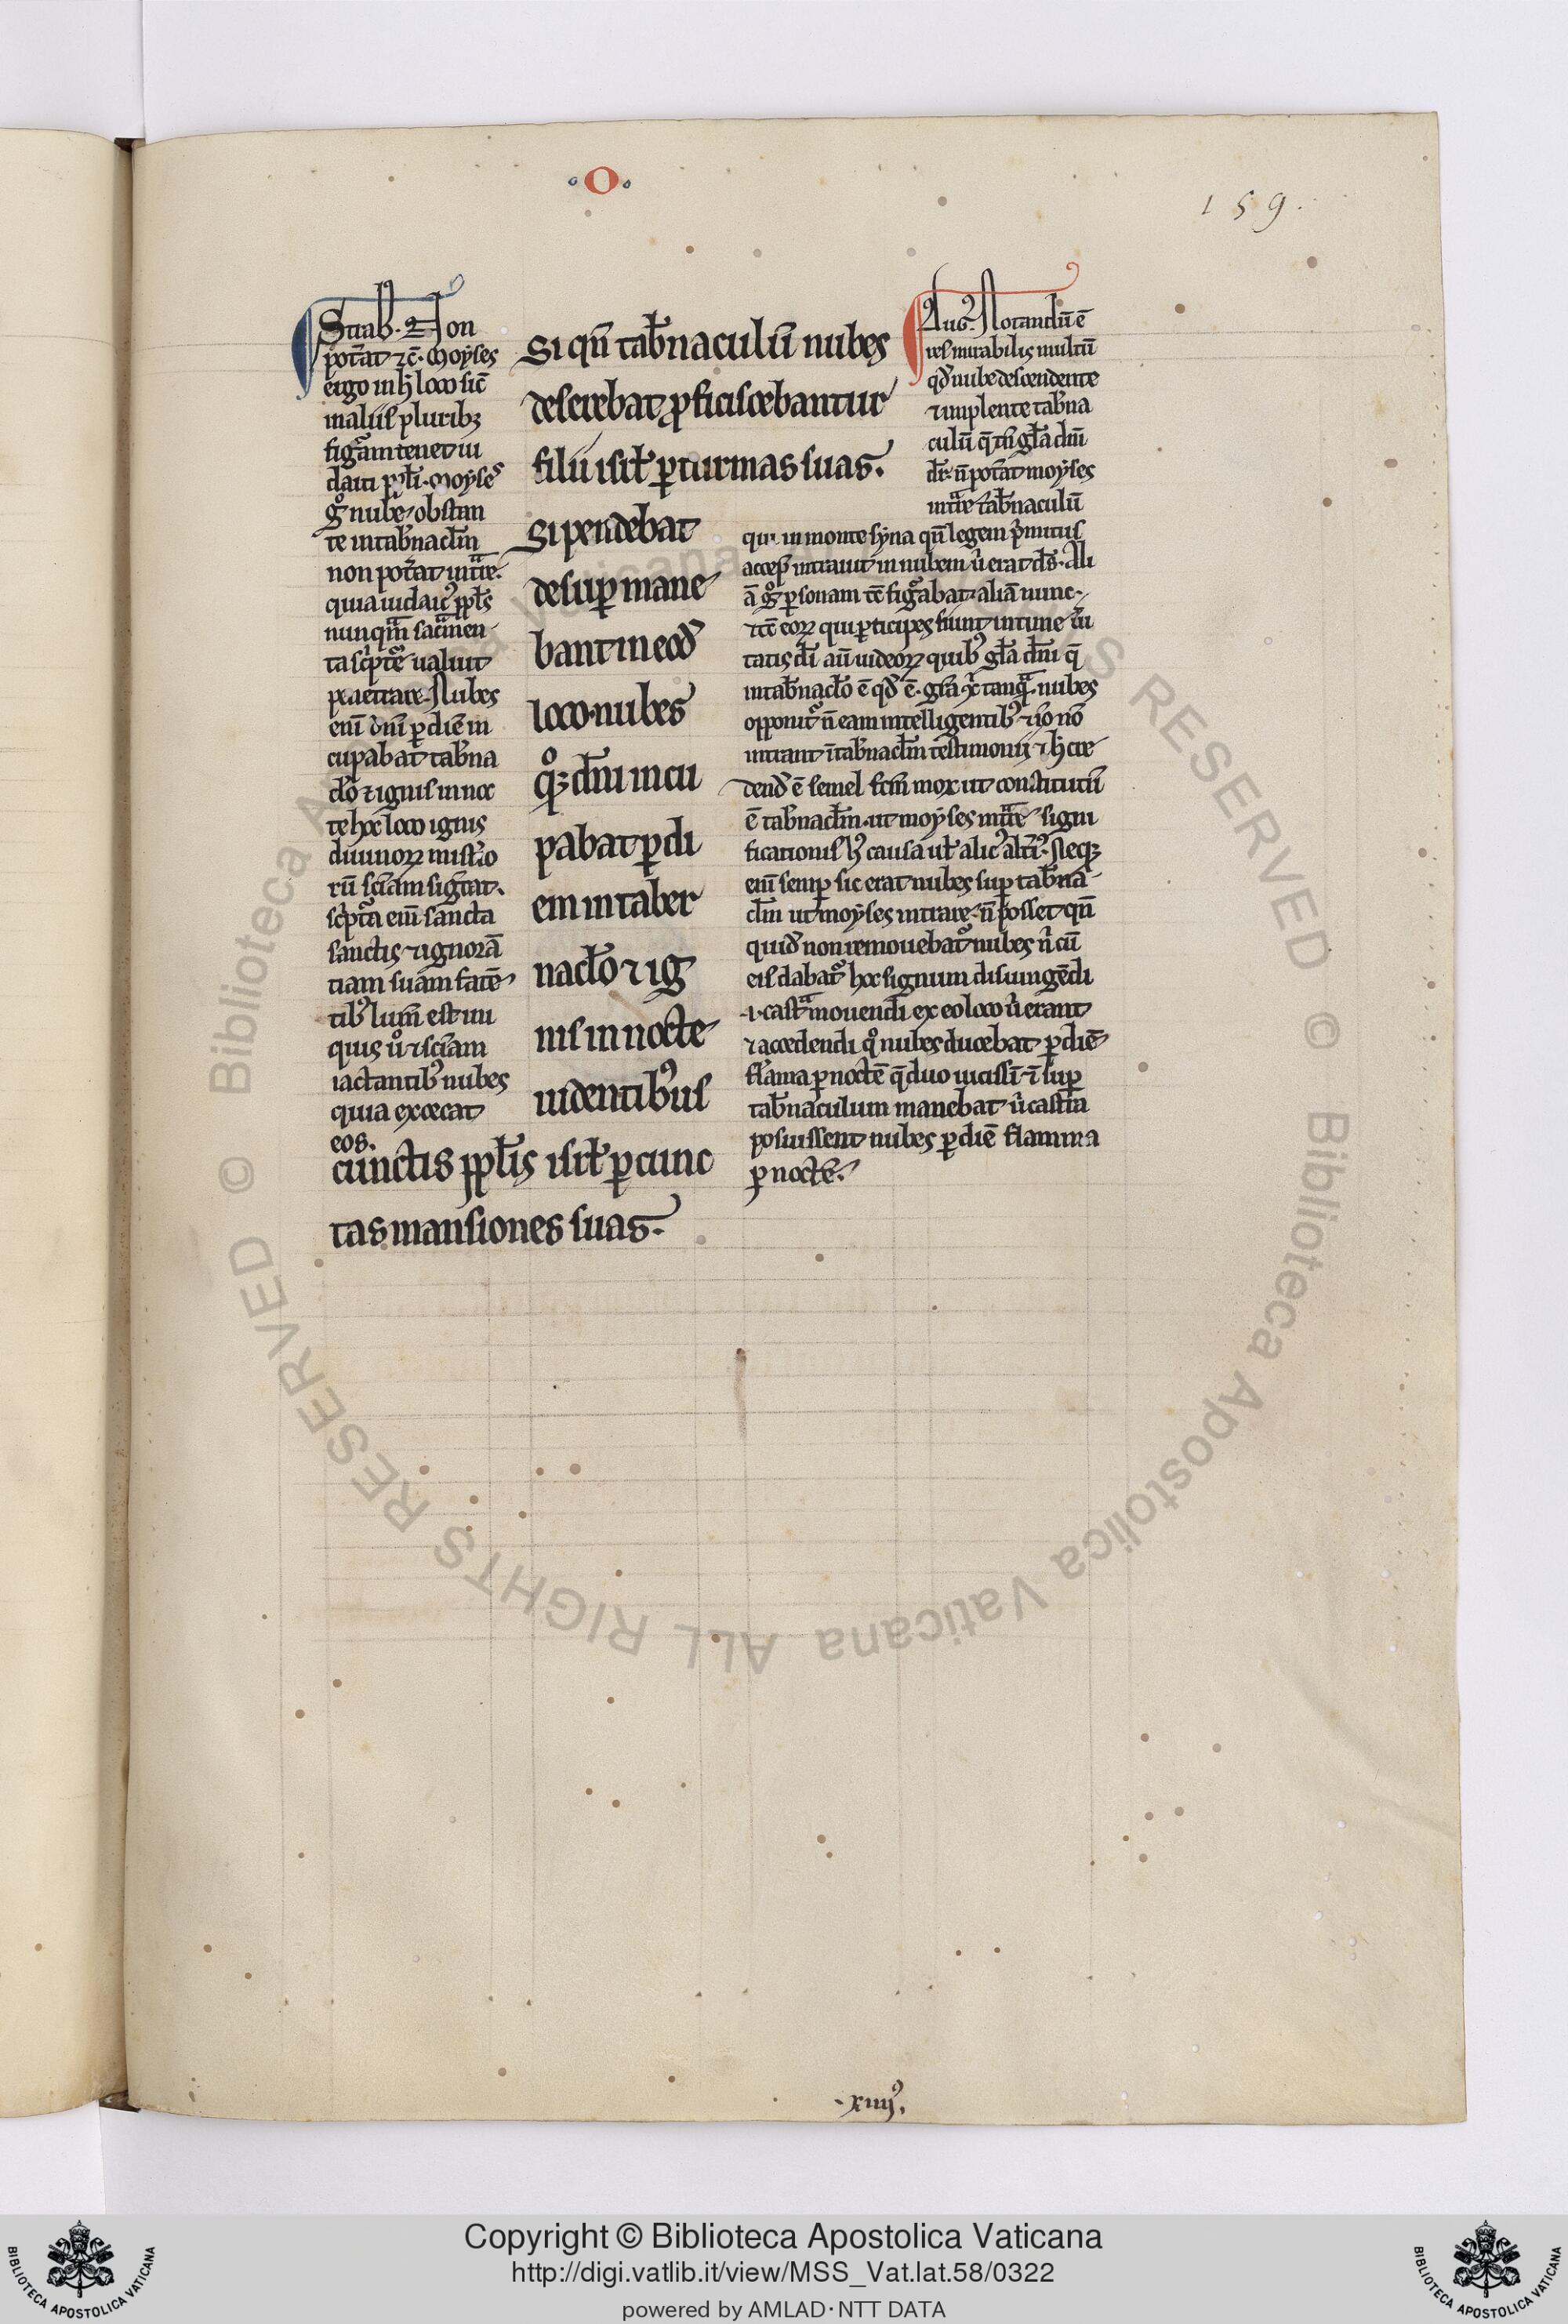 .O.
159.
Strab. Non
pot̃at ⁊c̃. Moyses
ergo in h̾ loco sic̃
in aliis pluribꝫ
figᵃm tenet iu
daici pp̃li. Moyses
gͦ nube obstan
te in tab̃nacl̃m
non pot̃at intᵃre.
quia iudaicꝰ pp̃ls
nunqᵃm sacᵃmen
ta sc̾pt̃e ualuit
penetrare. Nubes
eni᷑ dn̄i ꝑ diē in
cupabat tab̃na
cl̃o ⁊ ignis in noc
te hoc loco ignis
diuinoꝝ mist̾io
rū sc̃iam sig̃tat.
sc̾ptᵃ eni᷑ sancta
sanctis ⁊ ignorā
tiam suam fatē
tibꝰ lum̃ est un
quis uͦ ⁊ sc̃iam
iactantibꝰ nubes
quia excecat
eos.
Si qn̄ tab̃naculū nubes
deserebat ꝓficiscebantur
filii isrl̃ ꝑ turmas suas.
Si pendebat
desuꝑ mane
bant in eod̃
loco. nubes
qͦꝫ dn̄i incu
pabat ꝑ di
em in taber
nacl̃o ⁊ ig
nis in nocte
uidentibꝰ us
cunctis pp̃lis isrl̃ ꝑ cunc
tas mansiones suas.
Augꝰ. Notandū ē
res mirabilis multū
qd̃ nube descendente
⁊ implente tab̃na
culū q̄ tn̄ gl̃a dn̄i
dr̃. n̄ pot̃at moyses
intᵃre tab̃naculū
qui in monte syna qn̄ legem p̾mitus
accep̃ intrauit in nubem u̾ erat ds̃. Ali
ā gͦ ꝑsonam tc̄ figᵃabat aliā nunc.
⁊ tc̄ eoꝝ qui ꝑticipes fiunt intime u̾i
tatis di᷑ au᷑ iudeoꝝ quibꝰ gl̃a dn̄i q̄
in tab̃nacl̃o ē qd̃ ē. gr̃a xp̄i tanqᵃ nubes
opponit̾ n̄ eam intelligentibꝰ ⁊ iͦo nō
intrant ī tab̃nacl̃m testimonii ⁊ h̾ cre
dend̃ ē semel fc̃m mox ut constitutū
ē tab̃nacl̃m. ut moyses intᵃre signi
ficationis hꝰ causa ul̃ alicꝰ alt̾iꝰ. Neqꝫ
eni᷑ semꝑ sic erat nubes suꝑ tab̃na
cl̃m ut moyses intrare n̄ posset qn̄
quid̃ non remouebat̾ nubes n̾ cū
eis dabat̾ hoc signum disiungēdi
.i. castᵃ mouendi ex eo loco u̾ erant
⁊ accedendi qͦ nubes ducebat ꝑ diē
flāma ꝑ noctē q̄ duo uicissī ⁊ suꝑ
tab̃naculum manebat u̾ castra
posuissent nubes ꝑ diē flamma
ꝑ noctē.
.xiiijꝰ.
© Biblioteca Apostolica Vaticana ALL RIGHTS RESERVED © Biblioteca Apostolica Vaticana ALL RIGHTS RESERVED
Copyright © Biblioteca Apostolica Vaticana
http://digi.vatlib.it/view/MSS_Vat.lat.58/0322
powered by AMLAD·NTT DATA
BIBLIOTECA APOSTOLICA VATICANA
BIBLIOTECA APOSTOLICA VATICANA